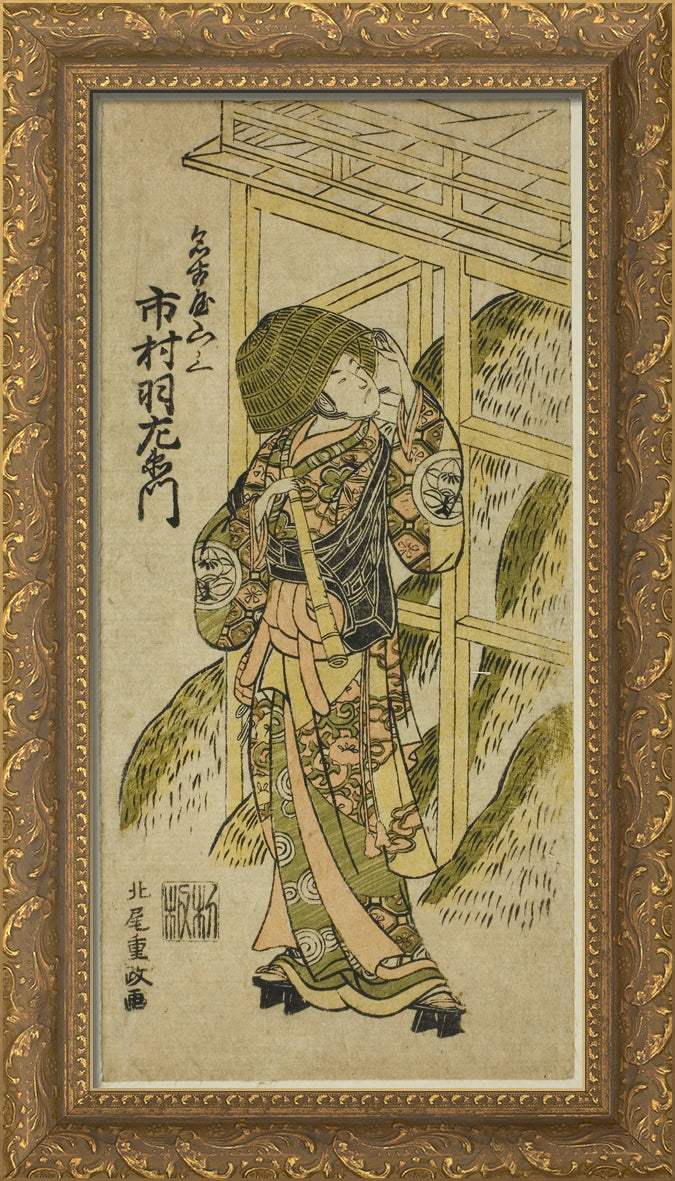 名古屋山三
市村羽左衛門
北尾重政画